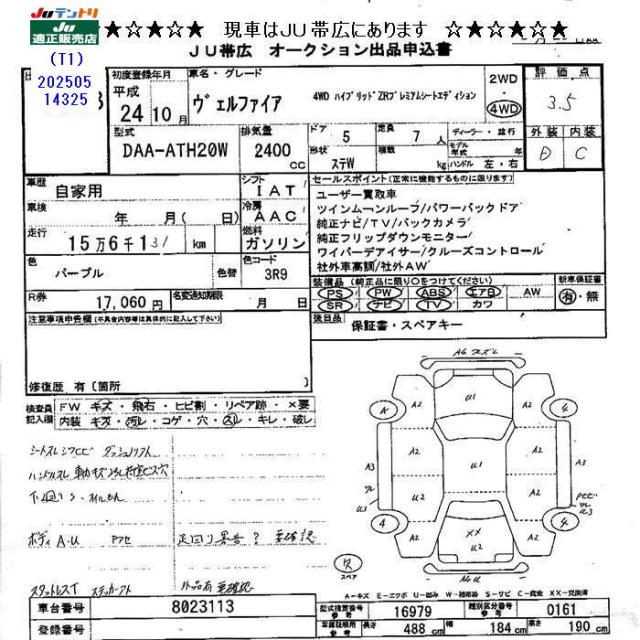 JUテントリ
JU
適正販売店
☆★☆★☆★ 現車はJU帯広にあります ☆★☆★☆★
(T1)
202505
14325
JU帯広 オークション出品申込書
初度登録年月
車名・グレード
2WD
4WD
評価点
平成
24 10月
ヴェルファイア
4WD ハイブリッドZRプレミアムシートエディション
3.5
型式
DAA-ATH20W
排気量
2400
cc
ドア
5
定員
7 人
ディーラー・並行
形状
ステW
積載
kg
モデル年式
年
ハンドル 左・右
外装 内装
D C
車歴
自家用
シフト
IAT
車検
年 月 ( 日)
冷房
AAC
走行
15万6千131 km
燃料
ガソリン
色
パープル
色替
色コード
3R9
R券
17,060円
名変通知期限
月 日
セールスポイント(正常に機能するものに限ります)
ユーザー買取車
ツインムーンルーフ/パワーバックドア
純正ナビ/TV/バックカメラ
純正フリップダウンモニター
ワイパーデアイサー/クルーズコントロール
社外車高調/社外AW
装備品 (純正品に限り○をつけてください)
PS PW ABS エアB AW
SR ナビ TV カワ
新車保証書
有・無
後日品
保証書・スペアキー
注意事項申告欄(不具合内容等は具体的に記入して下さい)
修復歴 有〔箇所 〕
検査員記入欄
FW キズ・飛石・ヒビ割・リペア跡・×要
内装 キズ・汚レ・コゲ・穴・スレ・キレ・破レ
シートスレ シワヒビ ダッシュリフト
ボディ A・U
足回り異音? 要確認
スタットレスT
社外品有 要確認
A4
A
4
A2
A2
U1
A2
A2
A3
U3
U1
A3
A2
A2
XX
U2
4
4
欠
スペア
A4U
A-キズ E-エクボ U-凹み W-補修跡 S-サビ C-腐食 XX-交換済
車台番号
8023113
登録番号
型式指定番号
16979
類別区分番号
0161
車両諸元用
長さ 488 cm
幅 184 cm
高さ 190 cm